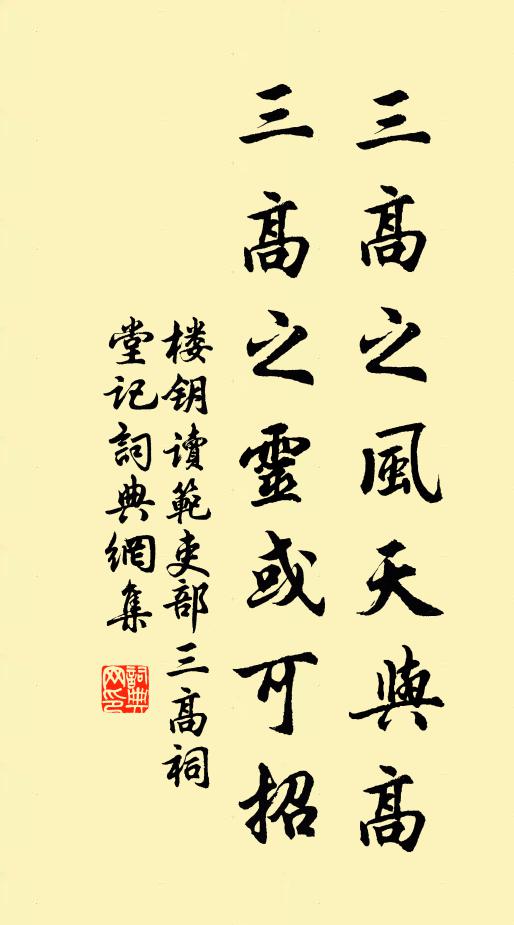 三高之風天與高
三高之靈或可招
楼钥讀範吏部三高祠
堂記詞典網集
詞典网印